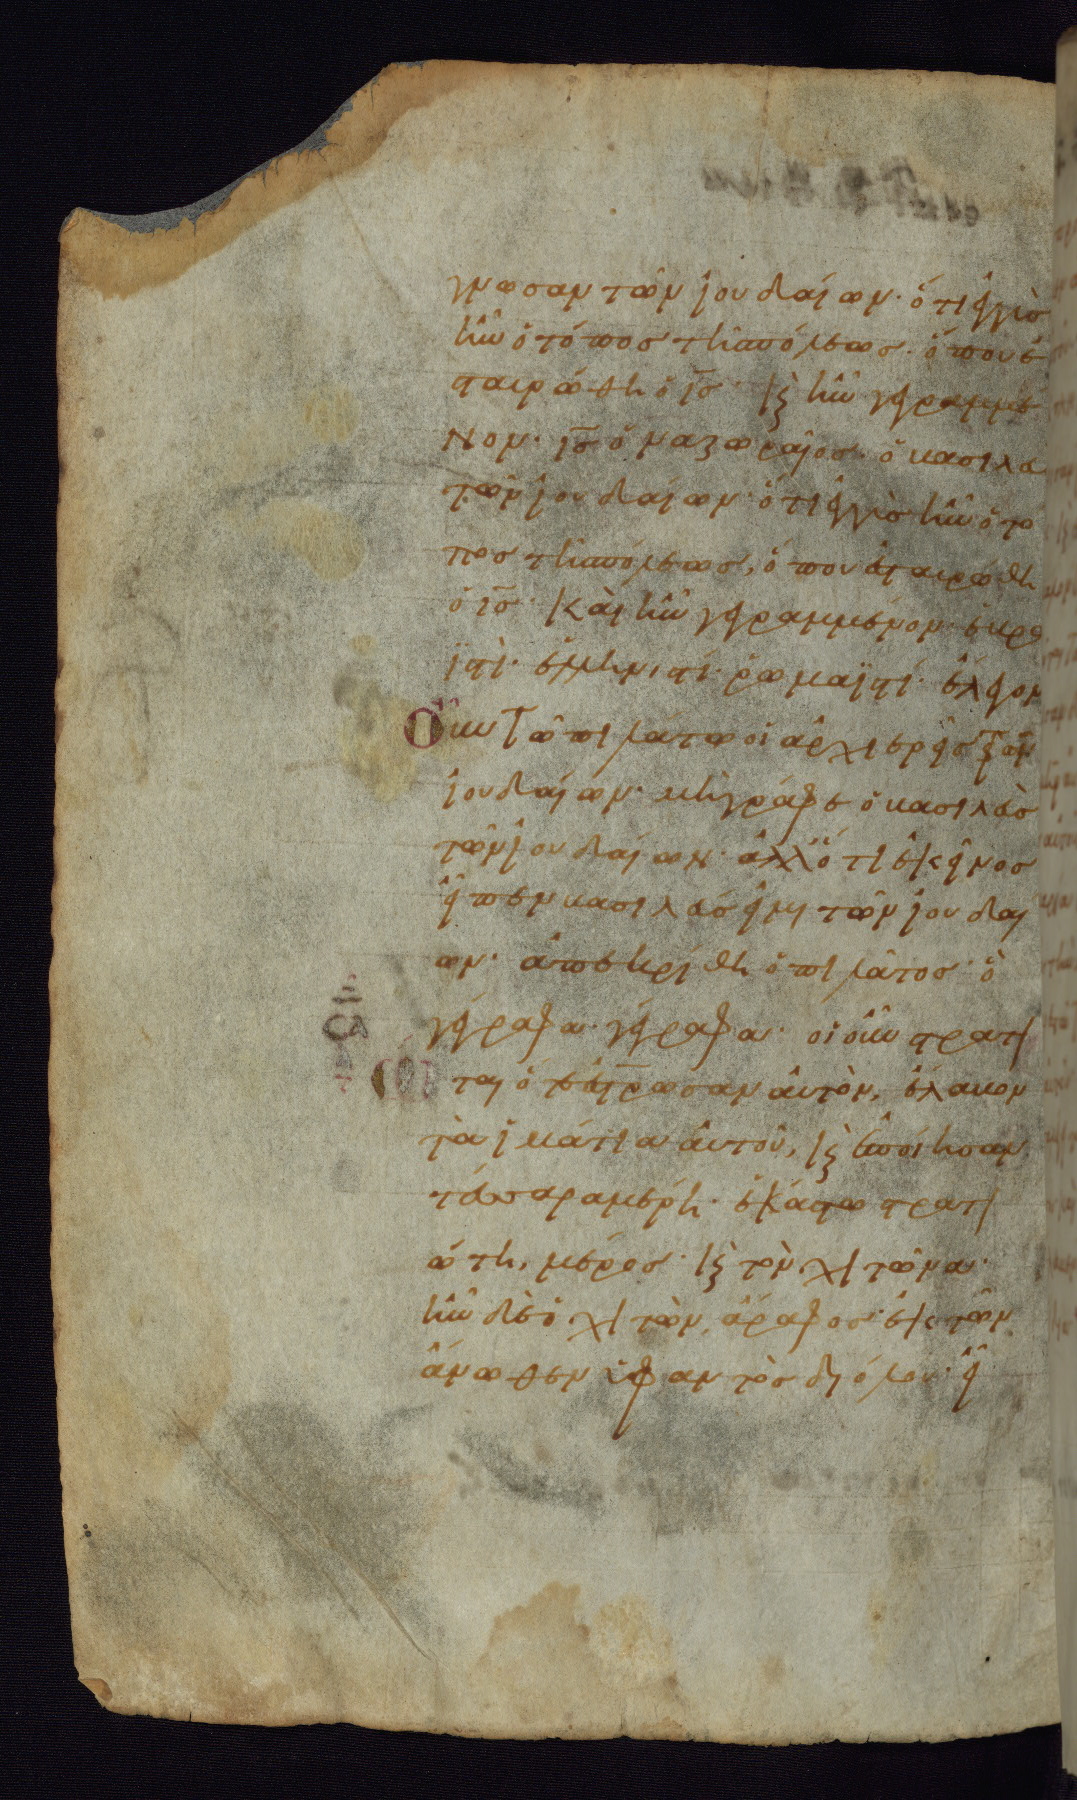 γνωσαν τῶν ἰουδαίων· ὅτι ἐγγὺσ
ἦν ὁ τόπος τῆς πόλεωσ· ὅπου ἐ
σταυρώθη ὁ ι̅σ̅· κ̀ ἦν γεγραμμέ
νον· ι̅σ̅ ὁ ναζωραῖοσ· ὁ βασιλεὺ
τῶν ἰουδαίων· ὅτι ἐγγὺσ ἦν ὁ τό
ποσ τῆς πόλεωσ, ὅπου ἐσταυρώθη
ὁ ι̅σ̅· καὶ ἦν γεγραμμένον· ἑβρα
ϊστί· ἑλληνιστί· ῥωμαϊστί· ἔλεγον
Οὖν τῶ πιλάτω οἱ ἀρχιερεῖσ τῶν
ἰουδαίων· μὴ γράφε ὁ βασιλεὺσ
τῶν ἰουδαίων· ἀλλ' ὅτι ἐκεῖνοσ
εἶπεν βασιλεύσ εἰμι τῶν ἰουδαί
ων· ἀπεκρίθη ὁ πιλᾶτοσ· ὃ
γέγραφα γέγραφα· οἱ οὖν στρατι
ται ὅτε ἐσταύρωσαν αὐτὸν, ἔλαβον
τὰ ἱμάτια αὐτοῦ, κ̀ ἐποίησαν
τέσσαρα μέρη· ἑκάστω στρατι
ώτη, μέροσ· κ̀ τὸν χιτῶνα·
ἦν δὲ ὁ χιτὼν ἄραφοσ· ἐκ τῶν
ἄνωθεν ὑφαντὸσ δι' ὅλου· εἶ